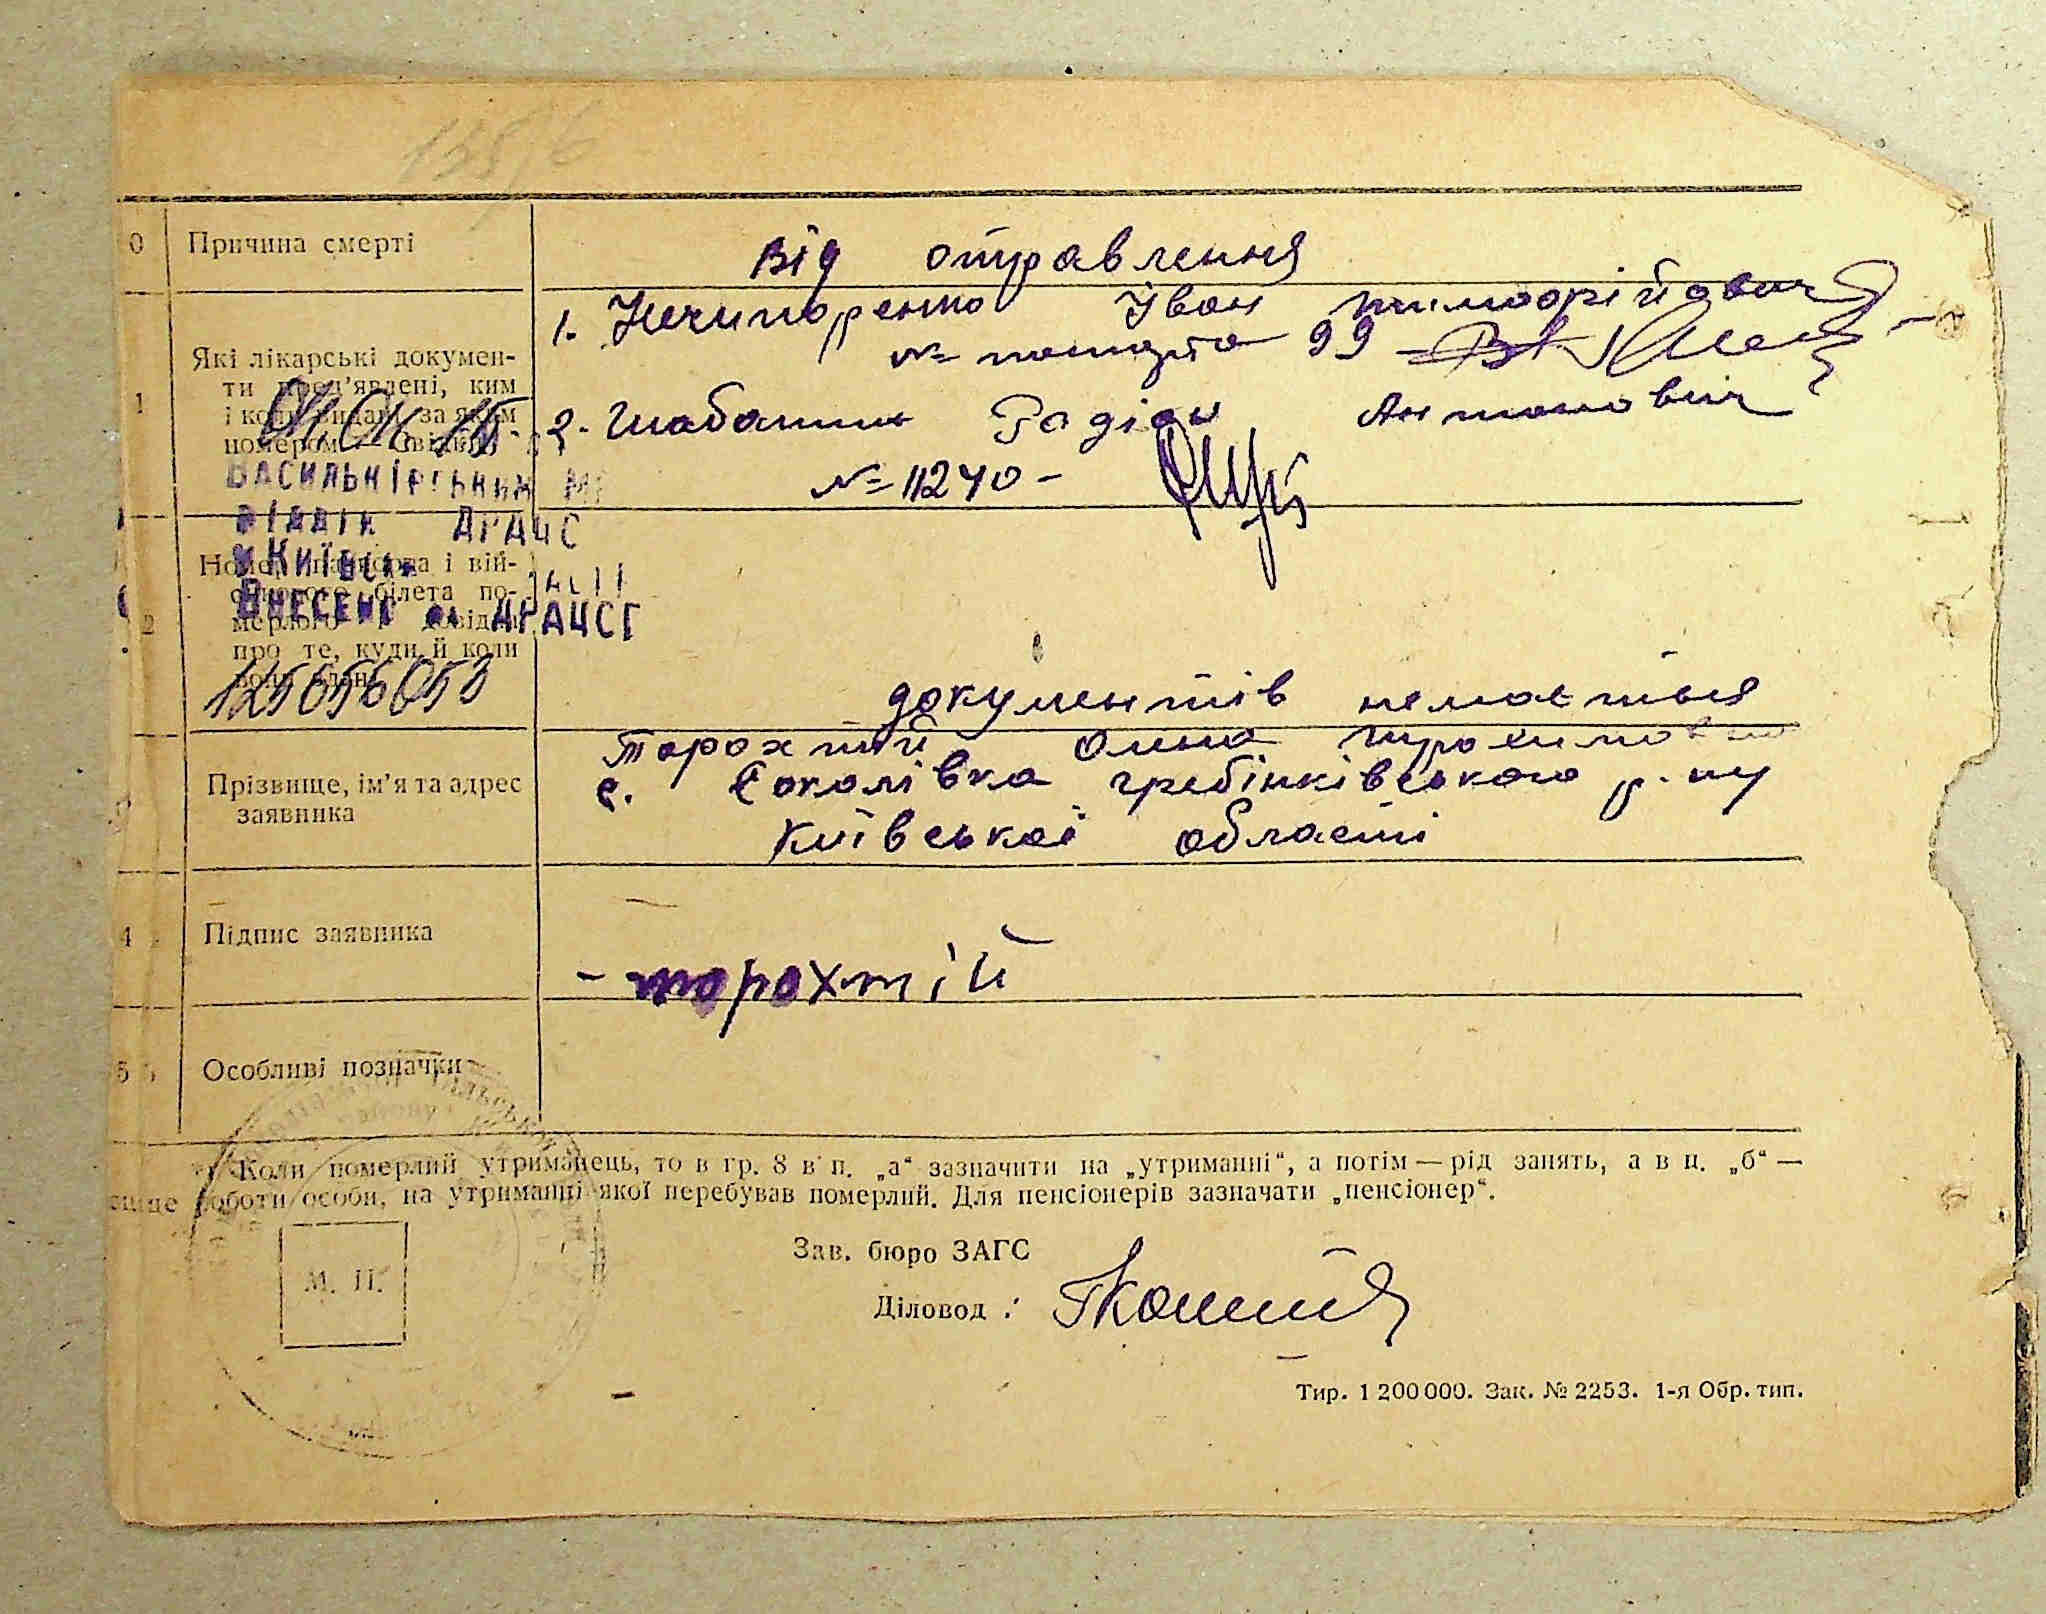 135/6
0 Причина смерті
від отравлення
1 Які лікарські докумен-
ти пред'явлені, ким
і коли видані за яким
номером
1. Нечипоренко Іван Тимофрійович
№ паспорта 99
2. Шабатин Радіон Антонович
№ 11240 -
ВАСИЛЬКІВСЬКИЙ МР
ВІДДІЛ ДРАЦС
КИЇВСЬК
ВНЕСЕНО ДО ДРАЦСГ
2 Номер паспорта і вій-
ськового білета по-
мерлого і довідки
про те, куди й коли
вони здані
документів немається
Прізвище, ім'я та адрес
заявника
Торохтій Олена Трохимовна
с. Соколівка гребінківського р-ну
Київської області
4 Підпис заявника
- торохтій
5 Особливі позначки
Коли померлий утриманець, то в гр. 8 в п. „а“ зазначити на „утриманні“, а потім — рід занять, а в п. „б“ —
роботи особи, на утриманні якої перебував померлий. Для пенсіонерів зазначати „пенсіонер“.
М. П.
Зав. бюро ЗАГС
Діловод :
Тир. 1 200 000. Зак. № 2253. 1-я Обр. тип.